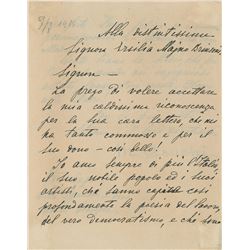 Alla distintissima
Signora Ersilia Majno Bronzini
Signora —
La prego di volere accettare
la mia caldissima riconoscenza
per la sua cara lettera, che mi
ha tanto commosso e per il
suo dono – così bello!
Io amo sempre di più l'Italia
il suo nobile popolo ed i suoi
artisti, che sanno capire così
profondamente la poesia del lavoro,
del vero democratismo, e che sono